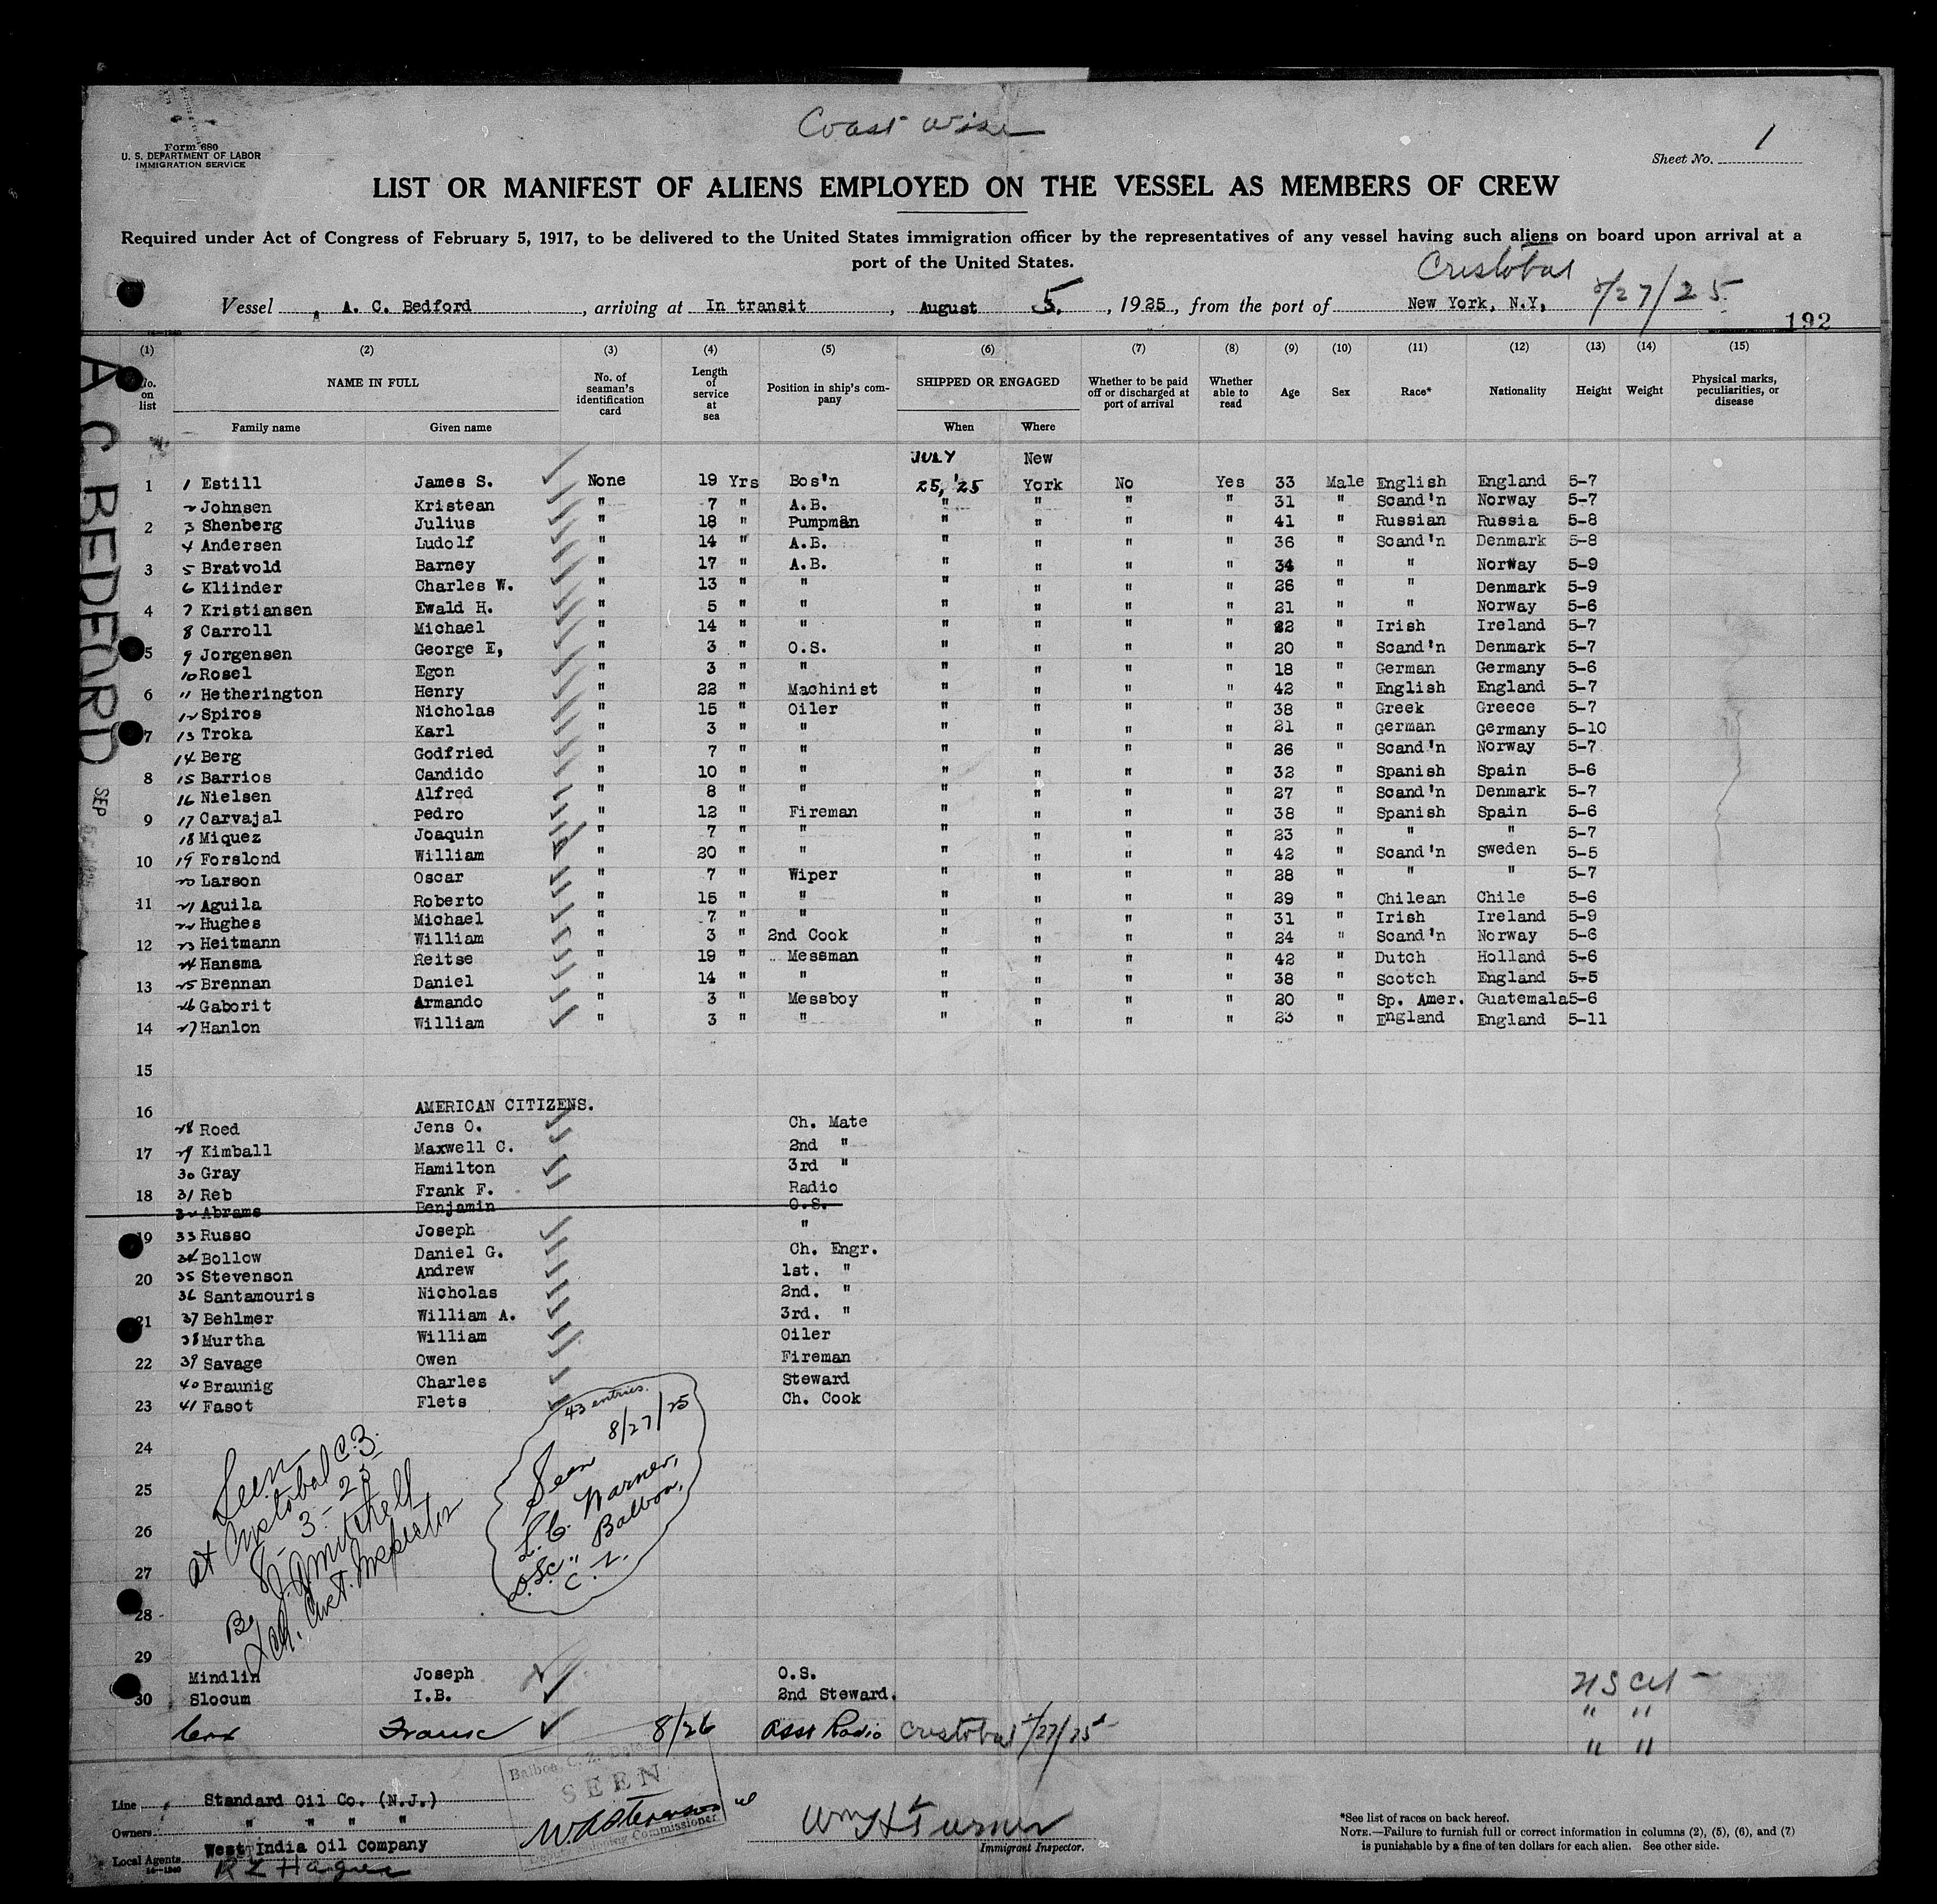 Coast wise
Form 680
U. S. DEPARTMENT OF LABOR
IMMIGRATION SERVICE
Sheet No. 1
LIST OR MANIFEST OF ALIENS EMPLOYED ON THE VESSEL AS MEMBERS OF CREW
Required under Act of Congress of February 5, 1917, to be delivered to the United States immigration officer by the representatives of any vessel having such aliens on board upon arrival at a
port of the United States.
Cristobal
Vessel A. C. Bedford, arriving at In transit, August 5, 1925, from the port of New York, N.Y, 8/27/25
192
A C BEDFORD
SEP
(1) (2) (3) (4) (5) (6) (7) (8) (9) (10) (11) (12) (13) (14) (15)
No. on list NAME IN FULL Family name Given name No. of seaman's identification card Length of service at sea Position in ship's company SHIPPED OR ENGAGED When Where Whether to be paid off or discharged at port of arrival Whether able to read Age Sex Race* Nationality Height Weight Physical marks, peculiarities, or disease
JULY New
1 1 Estill James S. None 19 Yrs Bos'n 25, '25 York No Yes 33 Male English England 5-7
2 Johnsen Kristean " 7 " A.B. " " " " 31 " Scand'n Norway 5-7
2 3 Shenberg Julius " 18 " Pumpman " " " " 41 " Russian Russia 5-8
4 Andersen Ludolf " 14 " A.B. " " " " 36 " Scand'n Denmark 5-8
3 5 Bratvold Barney " 17 " A.B. " " " " 34 " " Norway 5-9
6 Kliinder Charles W. " 13 " " " " " " 26 " " Denmark 5-9
4 7 Kristiansen Ewald H. " 5 " " " " " " 21 " " Norway 5-6
8 Carroll Michael " 14 " " " " " " 22 " Irish Ireland 5-7
5 9 Jorgensen George E, " 3 " O.S. " " " " 20 " Scand'n Denmark 5-7
10 Rosel Egon " 3 " " " " " " 18 " German Germany 5-6
6 11 Hetherington Henry " 22 " Machinist " " " " 42 " English England 5-7
12 Spiros Nicholas " 15 " Oiler " " " " 38 " Greek Greece 5-7
7 13 Troka Karl " 3 " " " " " " 21 " German Germany 5-10
14 Berg Godfried " 7 " " " " " " 26 " Scand'n Norway 5-7
8 15 Barrios Candido " 10 " " " " " " 32 " Spanish Spain 5-6
16 Nielsen Alfred " 8 " " " " " " 27 " Scand'n Denmark 5-7
9 17 Carvajal Pedro " 12 " Fireman " " " " 38 " Spanish Spain 5-6
18 Miquez Joaquin " 7 " " " " " " 23 " " " 5-7
10 19 Forslond William " 20 " " " " " " 42 " Scand'n Sweden 5-5
20 Larson Oscar " 7 " Wiper " " " " 28 " " " 5-7
11 21 Aguila Roberto " 15 " " " " " " 29 " Chilean Chile 5-6
22 Hughes Michael " 7 " " " " " " 31 " Irish Ireland 5-9
12 23 Heitmann William " 3 " 2nd Cook " " " " 24 " Scand'n Norway 5-6
24 Hansma Reitse " 19 " Messman " " " " 42 " Dutch Holland 5-6
13 25 Brennan Daniel " 14 " " " " " " 38 " Scotch England 5-5
26 Gaborit Armando " 3 " Messboy " " " " 20 " Sp. Amer. Guatemala 5-6
14 27 Hanlon William " 3 " " " " " " 23 " England England 5-11
15
16 AMERICAN CITIZENS.
28 Roed Jens O. Ch. Mate
17 29 Kimball Maxwell C. 2nd "
30 Gray Hamilton 3rd "
18 31 Reb Frank F. Radio
32 Abrams Benjamin O.S.
19 33 Russo Joseph "
34 Bollow Daniel G. Ch. Engr.
20 35 Stevenson Andrew 1st. "
36 Santamouris Nicholas 2nd. "
21 37 Behlmer William A. 3rd. "
38 Murtha William Oiler
22 39 Savage Owen Fireman
40 Braunig Charles Steward
23 41 Fasot Flets Ch. Cook
24
25
26
27
28
29
Seen
at Cristobal C.Z.
8-3-25
By J. A Mitchell
Ch. Cust. Inspector
43 entries.
8/27/25
Seen
L. C. Warner,
Balboa,
C. Z.
Mindlin Joseph O.S. US Cit
30 Slocum I.B. 2nd Steward. " "
Frank 8/26 Asst Radio Cristobal 8/27/25 " "
Balboa, C. Z.
SEEN
Commissioner
Line Standard Oil Co. (N.J.)
Owners " " " "
Local Agents West India Oil Company
Wm H Turner
Immigrant Inspector.
*See list of races on back hereof.
NOTE.—Failure to furnish full or correct information in columns (2), (5), (6), and (7)
is punishable by a fine of ten dollars for each alien. See other side.